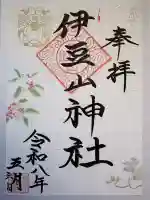 奉拝
伊豆山神社
令和八年
五月